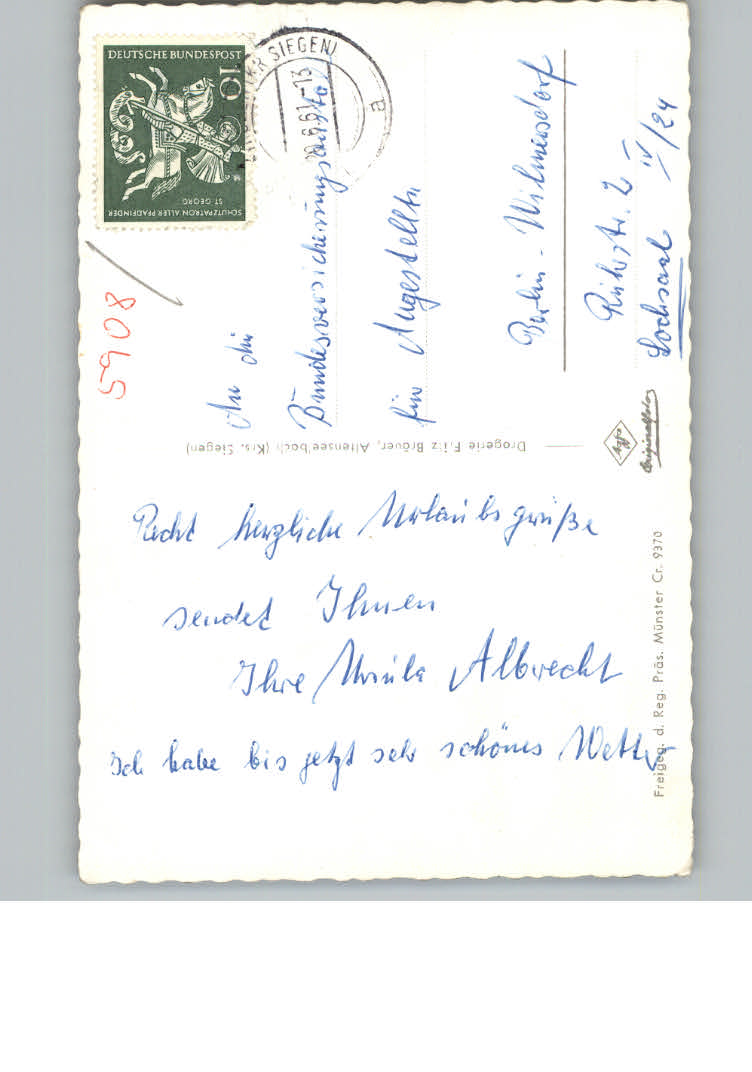 Recht herzliche Urlaubsgrüße
sendet Ihnen
Ihre Ursula Albrecht
Ich habe bis jetzt sehr schönes Wetter
An die
Bundesversicherungsanstalt
für Angestellte
Berlin-Wilmersdorf
Ruhrstr. 2
IV/24
Lochsaal
5908
DEUTSCHE BUNDESPOST
10
SCHUTZPATRON ALLER PFADFINDER
ST GEORG
(KR SIEGEN)
6.61.-13
a
Drogerie Fritz Bräuer, Altenseelbach (Krs. Siegen)
Agfa
Originalfoto
Freigeg. d. Reg. Präs. Münster Cr. 9370